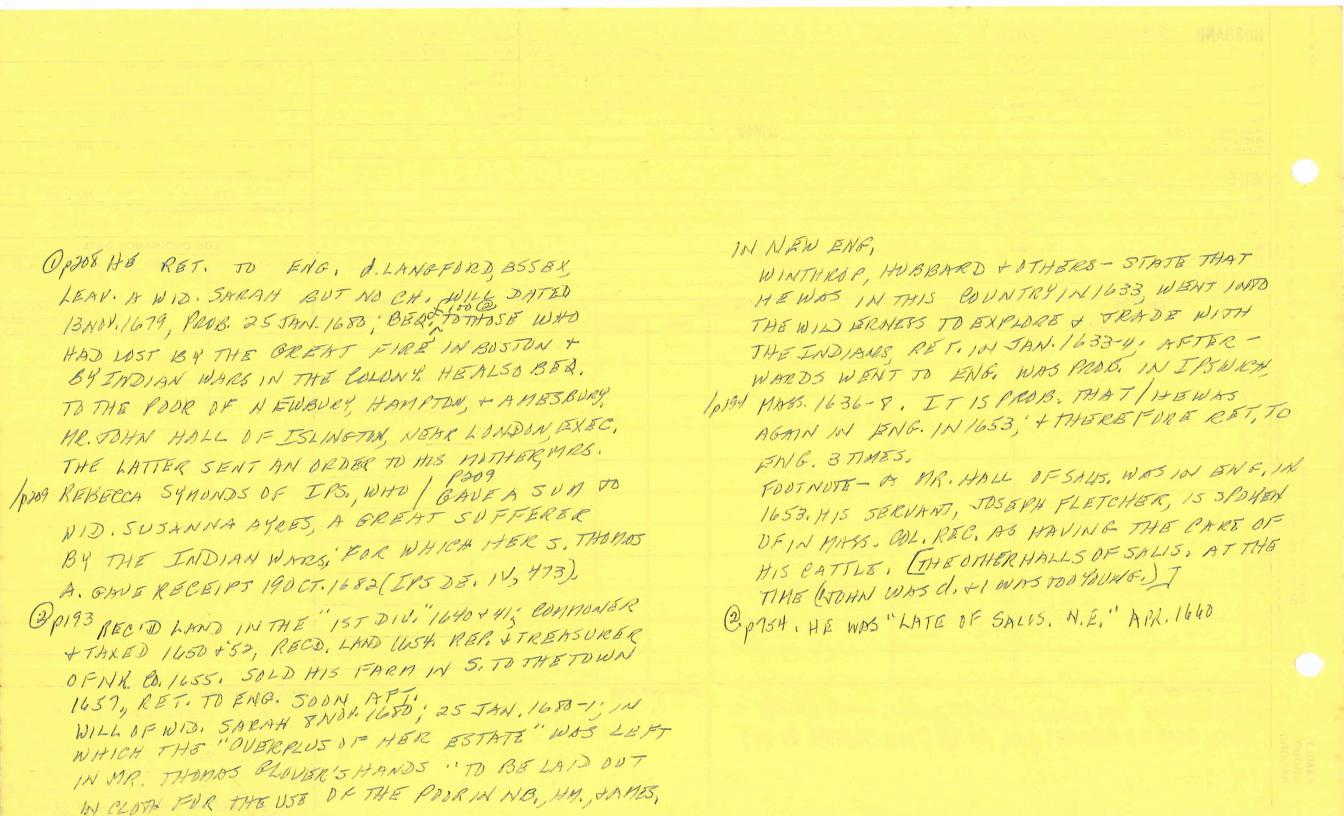 ① p208 HE RET. TO ENG. d. LANGFORD, ESSEX,
LEAV. A WID. SARAH BUT NO CH. WILL DATED
13 NOV. 1679, PROB. 25 JAN. 1680; BEQ. OF 100 £ TO THOSE WHO
HAD LOST BY THE GREAT FIRE IN BOSTON &
BY INDIAN WARS IN THE COLONY. HE ALSO BEQ.
TO THE POOR OF NEWBURY, HAMPTON, & AMESBURY.
MR. JOHN HALL OF ISLINGTON, NEAR LONDON, EXEC.
THE LATTER SENT AN ORDER TO HIS MOTHER, MRS.
/p209 REBECCA SYMONDS OF IPS., WHO / p209 GAVE A SUM TO
WID. SUSANNA AYRES, A GREAT SUFFERER
BY THE INDIAN WARS, FOR WHICH HER S. THOMAS
A. GAVE RECEIPT 19 OCT. 1682 (IPS DE. IV, 473).
② p193 REC'D LAND IN THE "1ST DIV." 1640 & 41; COMMONER
& TAXED 1650 & 52, RECD. LAND 1654. REP. & TREASURER
OF NK. CO. 1655. SOLD HIS FARM IN S. TO THE TOWN
1657, RET. TO ENG. SOON AFT.
WILL OF WID. SARAH 8 NOV. 1680; 25 JAN. 1680-1; IN
WHICH THE "OVERPLUS OF HER ESTATE" WAS LEFT
IN MR. THOMAS GLOVER'S HANDS "TO BE LAID OUT
IN CLOTH FOR THE USE OF THE POOR IN NB., HM., & AMES.
IN NEW ENG.
WINTHROP, HUBBARD & OTHERS - STATE THAT
HE WAS IN THIS COUNTRY IN 1633, WENT INTO
THE WILDERNESS TO EXPLORE & TRADE WITH
THE INDIANS, RET. IN JAN. 1633-4. AFTER-
WARDS WENT TO ENG. WAS PROB. IN IPSWICH,
/p194 MASS. 1636-8. IT IS PROB. THAT / HE WAS
AGAIN IN ENG. IN 1653, & THEREFORE RET. TO
ENG. 3 TIMES.
FOOTNOTE - A MR. HALL OF SALIS. WAS IN ENG. IN
1653. HIS SERVANT, JOSEPH FLETCHER, IS SPOKEN
OF IN MASS. COL. REC. AS HAVING THE CARE OF
HIS CATTLE. [THE OTHER HALLS OF SALIS. AT THE
TIME (JOHN WAS d. & 1 WAS TOO YOUNG.)]
② p754. HE WAS "LATE OF SALIS. N.E." APR. 1660
HUSBAND
WIFE